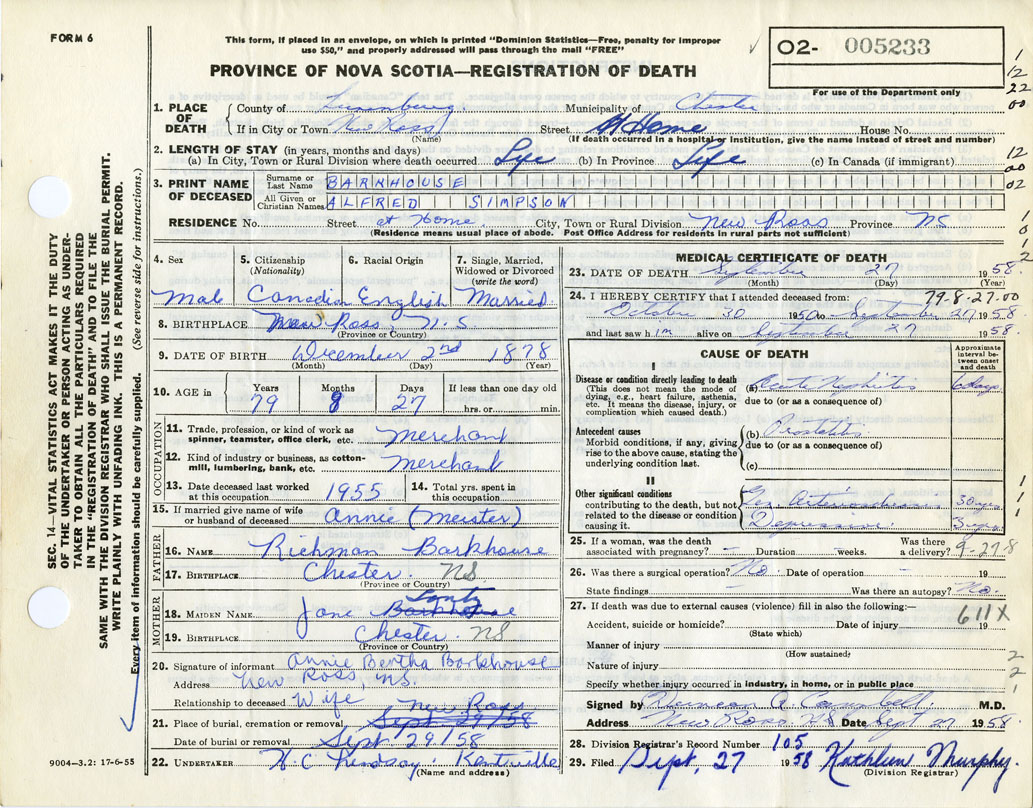 FORM 6
This form, if placed in an envelope, on which is printed "Dominion Statistics—Free, penalty for improper
use $50," and properly addressed will pass through the mail "FREE"
PROVINCE OF NOVA SCOTIA—REGISTRATION OF DEATH
O2- 005233
For use of the Department only
1
12
22
00
12
00
02
1
0
1
2
1. PLACE OF DEATH { County of Lunenburg. Municipality of Chester
If in City or Town New Ross Street At Home House No.
(Name) (If death occurred in a hospital or institution, give the name instead of street and number)
2. LENGTH OF STAY (in years, months and days)
(a) In City, Town or Rural Division where death occurred Life (b) In Province Life (c) In Canada (if immigrant)
3. PRINT NAME OF DECEASED { Surname or Last Name BARKHOUSE
All Given or Christian Names ALFRED SIMPSON
RESIDENCE No. Street at Home City, Town or Rural Division New Ross Province NS
(Residence means usual place of abode. Post Office Address for residents in rural parts not sufficient)
4. Sex 5. Citizenship (Nationality) 6. Racial Origin 7. Single, Married, Widowed or Divorced (write the word)
Male Canadian English Married
8. BIRTHPLACE New Ross, N.S
(Province or Country)
9. DATE OF BIRTH December 2nd 1878
(Month) (Day) (Year)
10. AGE in Years Months Days If less than one day old
79 8 27 hrs. or min.
OCCUPATION
11. Trade, profession, or kind of work as spinner, teamster, office clerk, etc. Merchant
12. Kind of industry or business, as cotton-mill, lumbering, bank, etc. Merchant
13. Date deceased last worked at this occupation 1955 14. Total yrs. spent in this occupation
15. If married give name of wife or husband of deceased Annie (Meister)
FATHER
16. NAME Richman Barkhouse
17. BIRTHPLACE Chester. NS
(Province or Country)
MOTHER
18. MAIDEN NAME Jane Barkhouse Lantz
19. BIRTHPLACE Chester. NS
(Province or Country)
20. Signature of informant Annie Bertha Barkhouse
Address New Ross, NS.
Relationship to deceased Wife
21. Place of burial, cremation or removal Sept 29/58 New Ross
Date of burial or removal Sept. 29/58
22. UNDERTAKER H. C Lindsay. Kentville
(Name and address)
9004—3.2: 17-6-55
MEDICAL CERTIFICATE OF DEATH
23. DATE OF DEATH September 27 1958.
(Month) (Day) (Year)
24. I HEREBY CERTIFY that I attended deceased from: 79-8-27.00
October 30 1950 to September 27 1958.
and last saw him alive on September 27 1958.
CAUSE OF DEATH
Approximate interval between onset and death
I
Disease or condition directly leading to death
(This does not mean the mode of dying, e.g., heart failure, asthenia, etc. It means the disease, injury, or complication which caused death.)
(a) Acute Nephritis 6 days
due to (or as a consequence of)
Antecedent causes
Morbid conditions, if any, giving rise to the above cause, stating the underlying condition last.
(b) Prostatitis
due to (or as a consequence of)
(c)
II
Other significant conditions
contributing to the death, but not related to the disease or condition causing it.
Gen. 30 yrs
Depression. 3 yrs.
1
1
1
25. If a woman, was the death associated with pregnancy? – Duration – weeks. Was there a delivery? 9-27-8
26. Was there a surgical operation? No. Date of operation – 19
State findings Was there an autopsy? No.
27. If death was due to external causes (violence) fill in also the following:—
611X
Accident, suicide or homicide? Date of injury 19
(State which)
Manner of injury
(How sustained)
Nature of injury
Specify whether injury occurred in industry, in home, or in public place
2
2
1
Signed by A Campbell M.D.
Address New Ross NS Date Sept 27 1958.
28. Division Registrar's Record Number 105
29. Filed Sept, 27 1958 Kathleen Murphy.
(Division Registrar)
SEC. 14—VITAL STATISTICS ACT MAKES IT THE DUTY
OF THE UNDERTAKER OR PERSON ACTING AS UNDER-
TAKER TO OBTAIN ALL THE PARTICULARS REQUIRED
IN THE "REGISTRATION OF DEATH" AND TO FILE THE
SAME WITH THE DIVISION REGISTRAR WHO SHALL ISSUE THE BURIAL PERMIT.
WRITE PLAINLY WITH UNFADING INK. THIS IS A PERMANENT RECORD.
Every item of information should be carefully supplied. (See reverse side for instructions.)